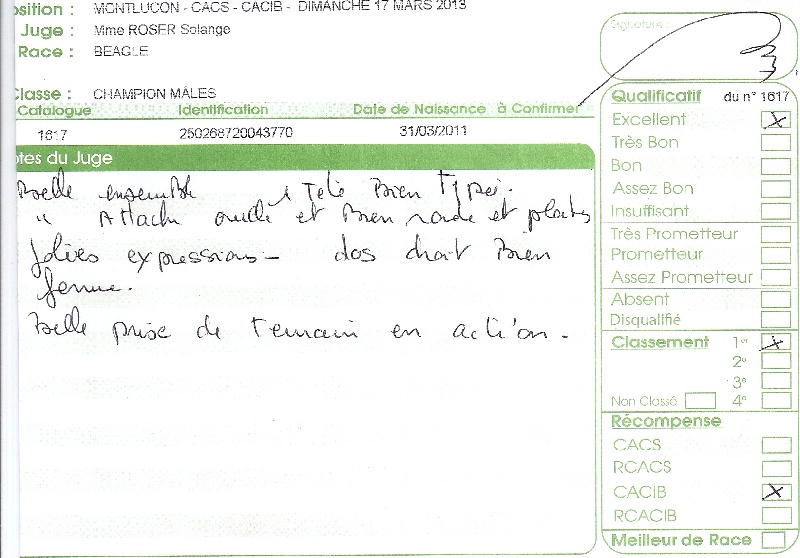 osition : MONTLUCON - CACS - CACIB - DIMANCHE 17 MARS 2013
Juge : Mme ROSER Solange
Race : BEAGLE
Classe : CHAMPION MÂLES
Catalogue Identification Date de Naissance à Confirmer
1617 250268720043770 31/03/2011
otes du Juge
Belle ensemble 1 Tete Bien Typé.
" Attach oreille et Bien ronde et plates
Jolies expressions - dos droit Bien
ferme.
Belle prise de Terrain en action.
Signature :
Qualificatif du n° 1617
Excellent X
Très Bon
Bon
Assez Bon
Insuffisant
Très Prometteur
Prometteur
Assez Prometteur
Absent
Disqualifié
Classement 1er X
2e
3e
Non Classé 4e
Récompense
CACS
RCACS
CACIB X
RCACIB
Meilleur de Race